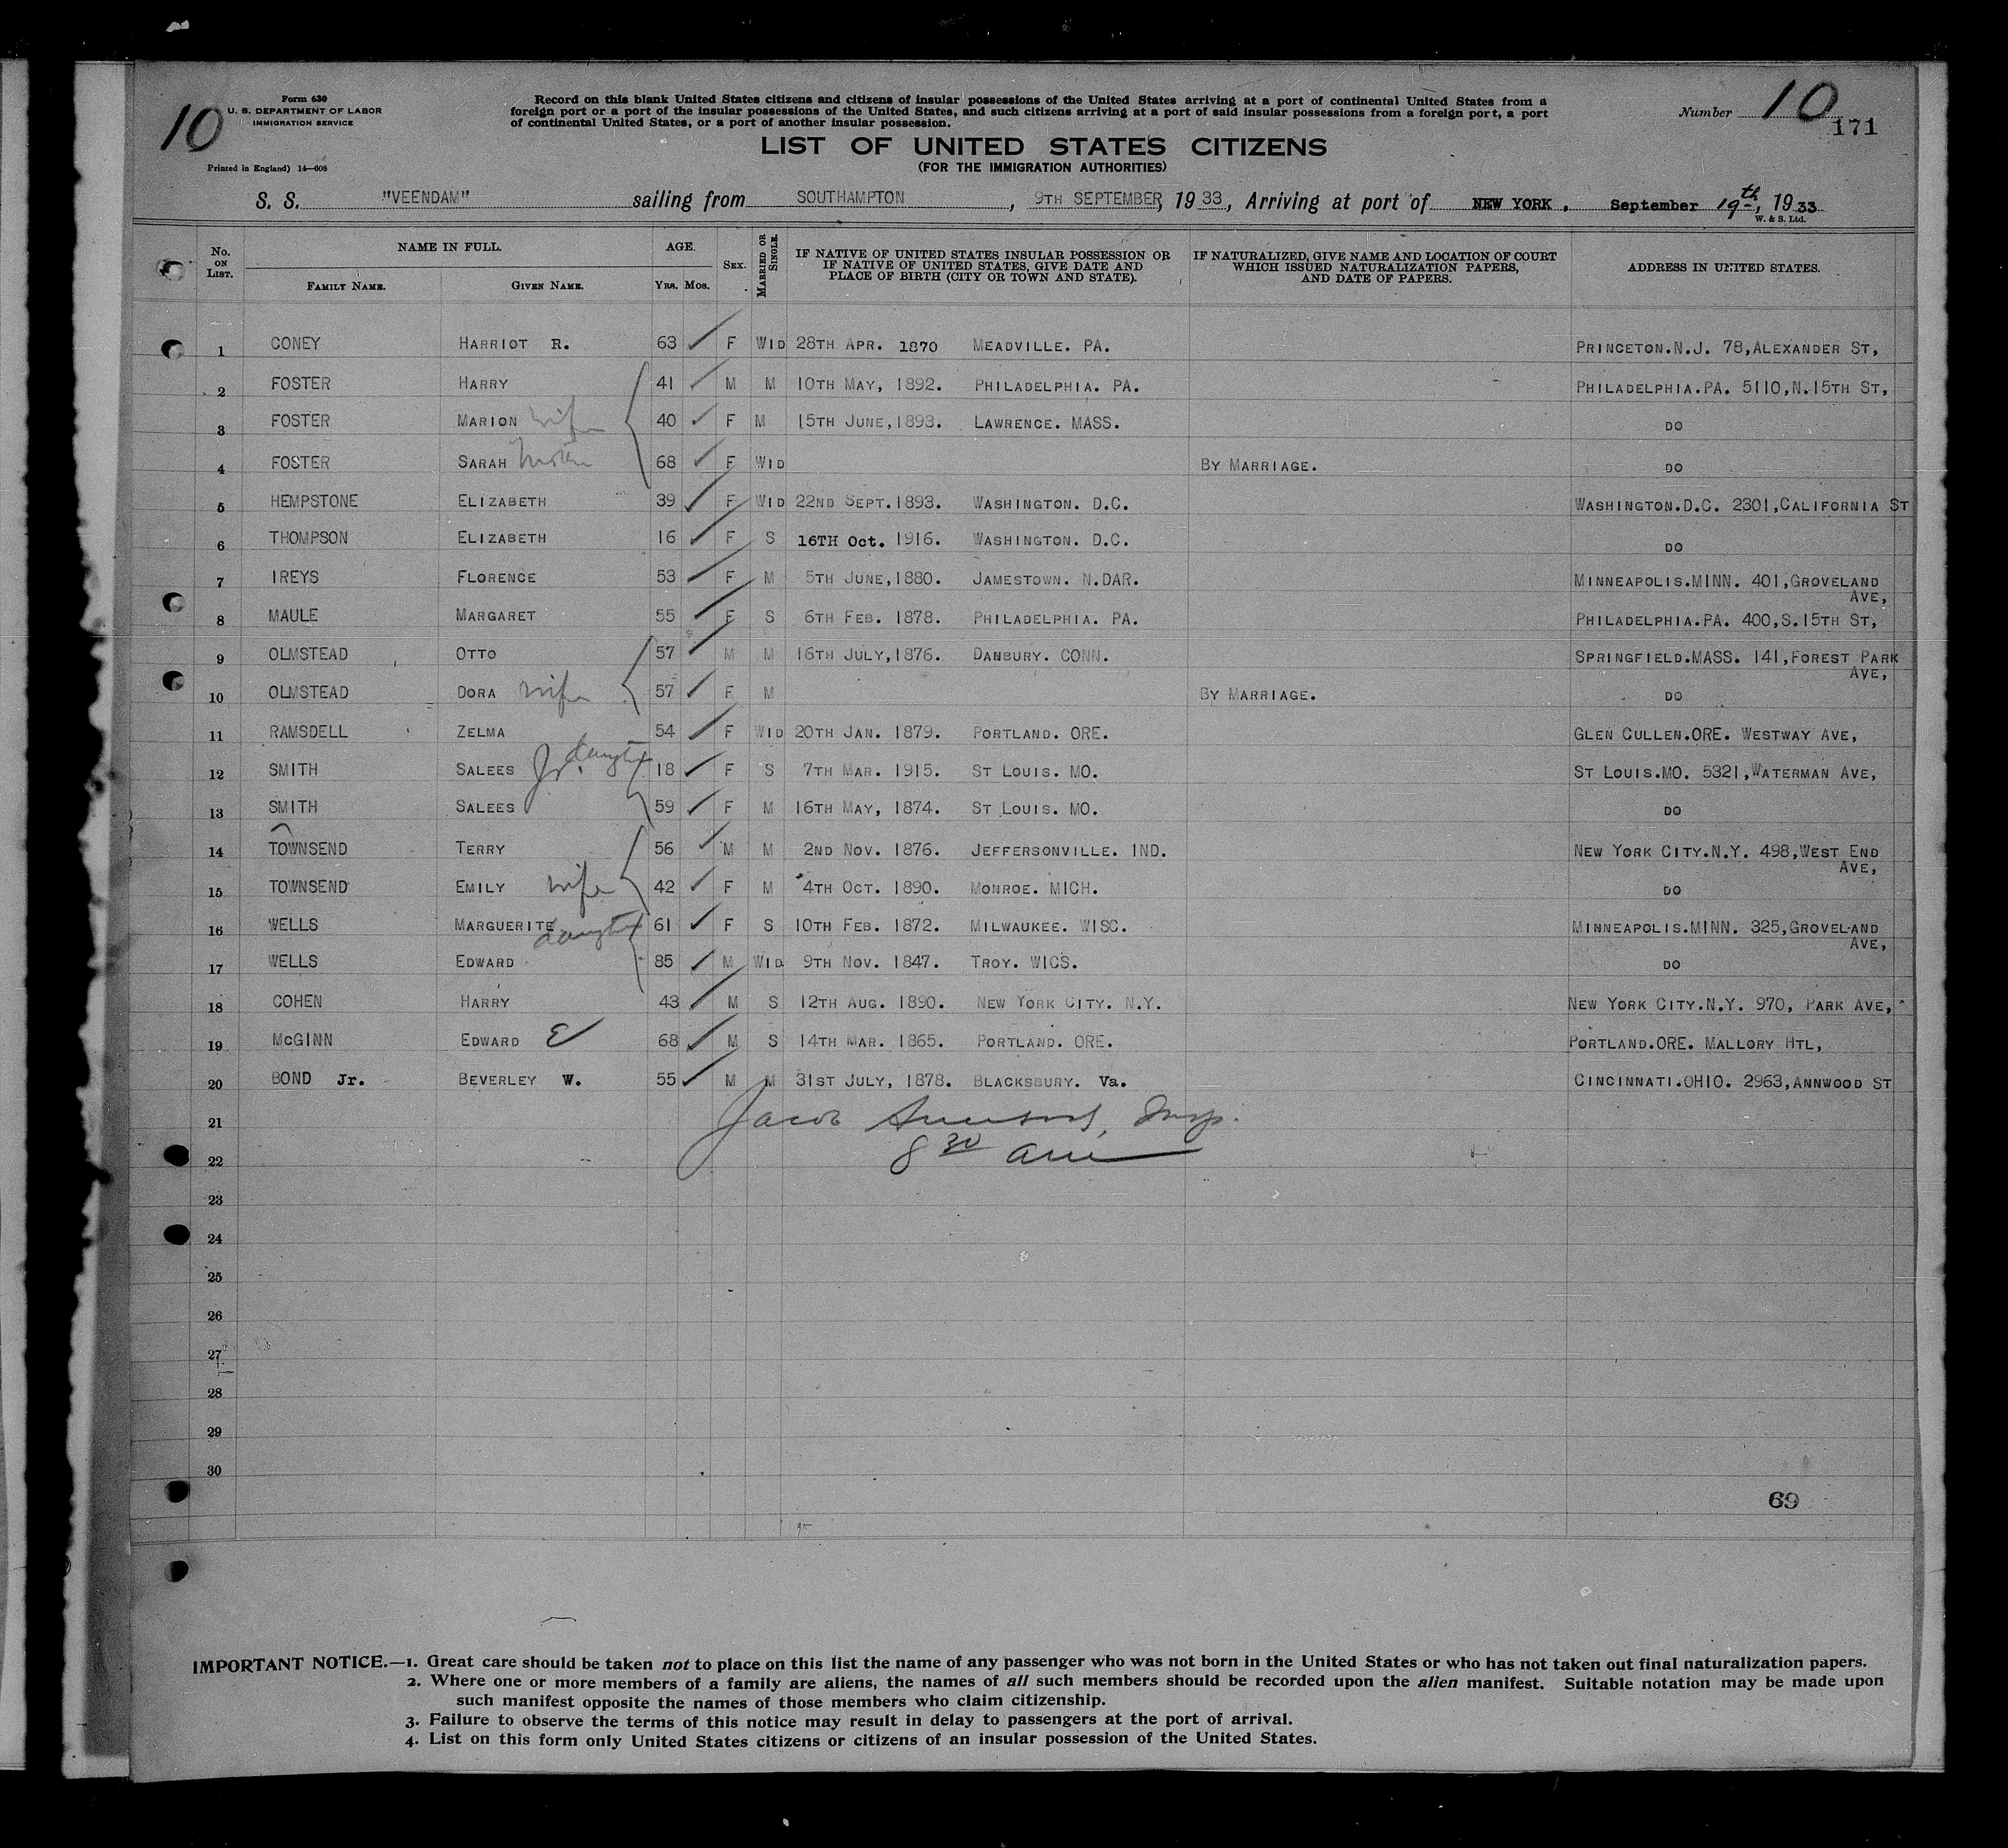 10
Form 630
U. S. DEPARTMENT OF LABOR
IMMIGRATION SERVICE
Printed in England) 14—608
Record on this blank United States citizens and citizens of insular possessions of the United States arriving at a port of continental United States from a
foreign port or a port of the insular possessions of the United States, and such citizens arriving at a port of said insular possessions from a foreign port, a port
of continental United States, or a port of another insular possession.
Number 10
171
LIST OF UNITED STATES CITIZENS
(FOR THE IMMIGRATION AUTHORITIES)
S. S. "VEENDAM" sailing from SOUTHAMPTON, 9TH SEPTEMBER, 1933, Arriving at port of NEW YORK, September 19th, 1933
W. & S. Ltd.
No. ON LIST. NAME IN FULL. FAMILY NAME. GIVEN NAME. AGE. YRS. MOS. SEX. MARRIED OR SINGLE. IF NATIVE OF UNITED STATES INSULAR POSSESSION OR IF NATIVE OF UNITED STATES, GIVE DATE AND PLACE OF BIRTH (CITY OR TOWN AND STATE). IF NATURALIZED, GIVE NAME AND LOCATION OF COURT WHICH ISSUED NATURALIZATION PAPERS, AND DATE OF PAPERS. ADDRESS IN UNITED STATES.
1 CONEY HARRIOT R. 63 F WID 28TH APR. 1870 MEADVILLE. PA. PRINCETON.N.J. 78,ALEXANDER ST,
2 FOSTER HARRY 41 M M 10TH MAY, 1892. PHILADELPHIA. PA. PHILADELPHIA.PA. 5110,N.15TH ST,
3 FOSTER MARION wife 40 F M 15TH JUNE,1893. LAWRENCE. MASS. DO
4 FOSTER SARAH mother 68 F WID BY MARRIAGE. DO
5 HEMPSTONE ELIZABETH 39 F WID 22ND SEPT.1893. WASHINGTON. D.C. WASHINGTON.D.C. 2301,CALIFORNIA ST
6 THOMPSON ELIZABETH 16 F S 16TH Oct. 1916. WASHINGTON. D.C. DO
7 IREYS FLORENCE 53 F M 5TH JUNE,1880. JAMESTOWN. N.DAR. MINNEAPOLIS.MINN. 401,GROVELAND AVE,
8 MAULE MARGARET 55 F S 6TH FEB. 1878. PHILADELPHIA. PA. PHILADELPHIA.PA. 400,S.15TH ST,
9 OLMSTEAD OTTO 57 M M 16TH JULY,1876. DANBURY. CONN. SPRINGFIELD.MASS. 141,FOREST PARK AVE,
10 OLMSTEAD DORA wife 57 F M BY MARRIAGE. DO
11 RAMSDELL ZELMA 54 F WID 20TH JAN. 1879. PORTLAND. ORE. GLEN CULLEN.ORE. WESTWAY AVE,
12 SMITH SALEES Jr. daught 18 F S 7TH MAR. 1915. ST LOUIS. MO. ST LOUIS.MO. 5321,WATERMAN AVE,
13 SMITH SALEES 59 F M 16TH MAY, 1874. ST LOUIS. MO. DO
14 TOWNSEND TERRY 56 M M 2ND NOV. 1876. JEFFERSONVILLE. IND. NEW YORK CITY.N.Y. 498,WEST END AVE,
15 TOWNSEND EMILY wife 42 F M 4TH OCT. 1890. MONROE. MICH. DO
16 WELLS MARGUERITE daught 61 F S 10TH FEB. 1872. MILWAUKEE. WISC. MINNEAPOLIS.MINN. 325,GROVELAND AVE,
17 WELLS EDWARD 85 M WID 9TH NOV. 1847. TROY. WICS. DO
18 COHEN HARRY 43 M S 12TH AUG. 1890. NEW YORK CITY. N.Y. NEW YORK CITY.N.Y. 970, PARK AVE,
19 McGINN EDWARD E 68 M S 14TH MAR. 1865. PORTLAND. ORE. PORTLAND.ORE. MALLORY HTL,
20 BOND Jr. BEVERLEY W. 55 M M 31ST JULY, 1878. BLACKSBURY. Va. CINCINNATI.OHIO. 2963,ANNWOOD ST
21 Jacob Insp.
22 8 30 am
23
24
25
26
27
28
29
30
69
IMPORTANT NOTICE.—1. Great care should be taken not to place on this list the name of any passenger who was not born in the United States or who has not taken out final naturalization papers.
2. Where one or more members of a family are aliens, the names of all such members should be recorded upon the alien manifest. Suitable notation may be made upon
such manifest opposite the names of those members who claim citizenship.
3. Failure to observe the terms of this notice may result in delay to passengers at the port of arrival.
4. List on this form only United States citizens or citizens of an insular possession of the United States.